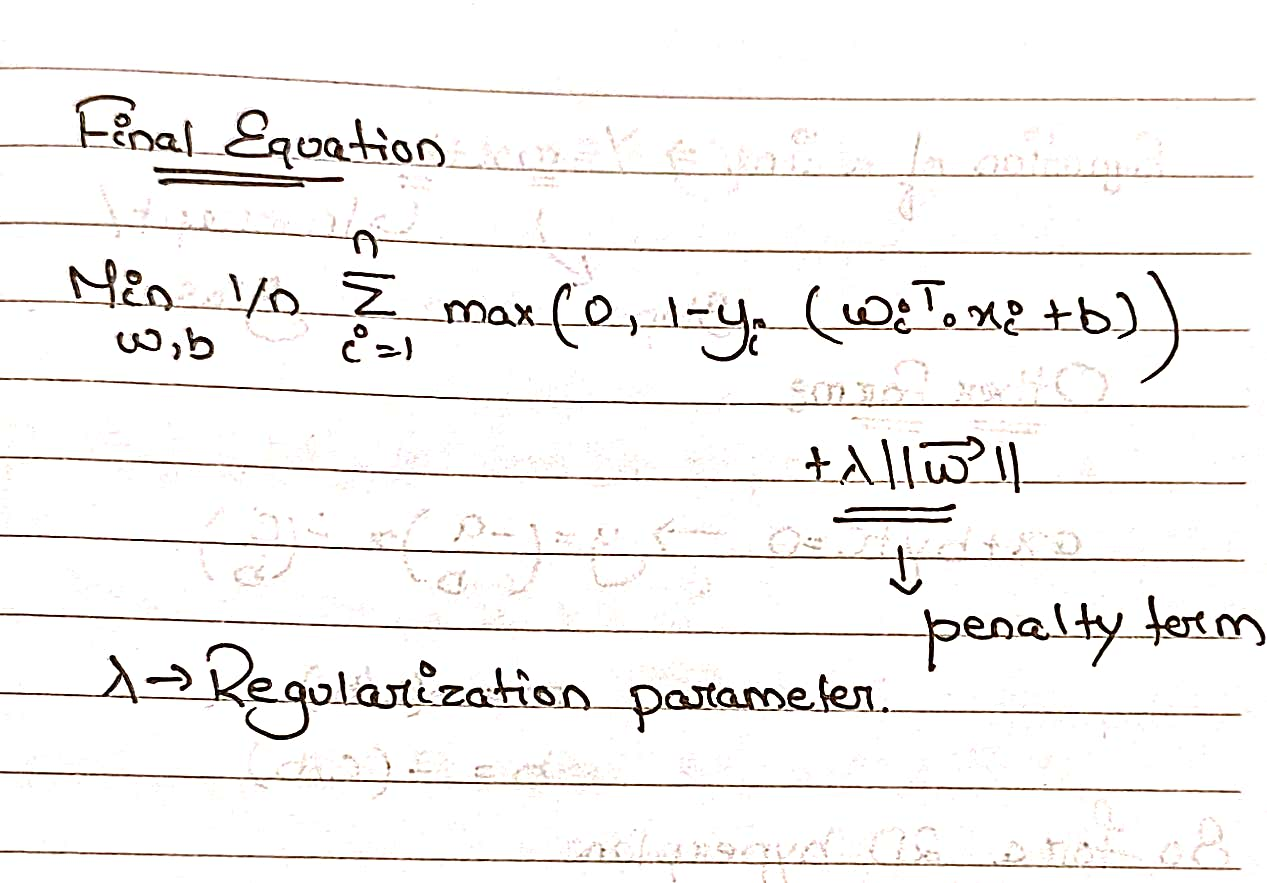 Final Equation
Min w,b 1/n n Σ i=1 max (0, 1-yᵢ (wᵢᵀ. xᵢ + b))
+ λ||w⃗||
↓
penalty term
λ → Regularization parameter.